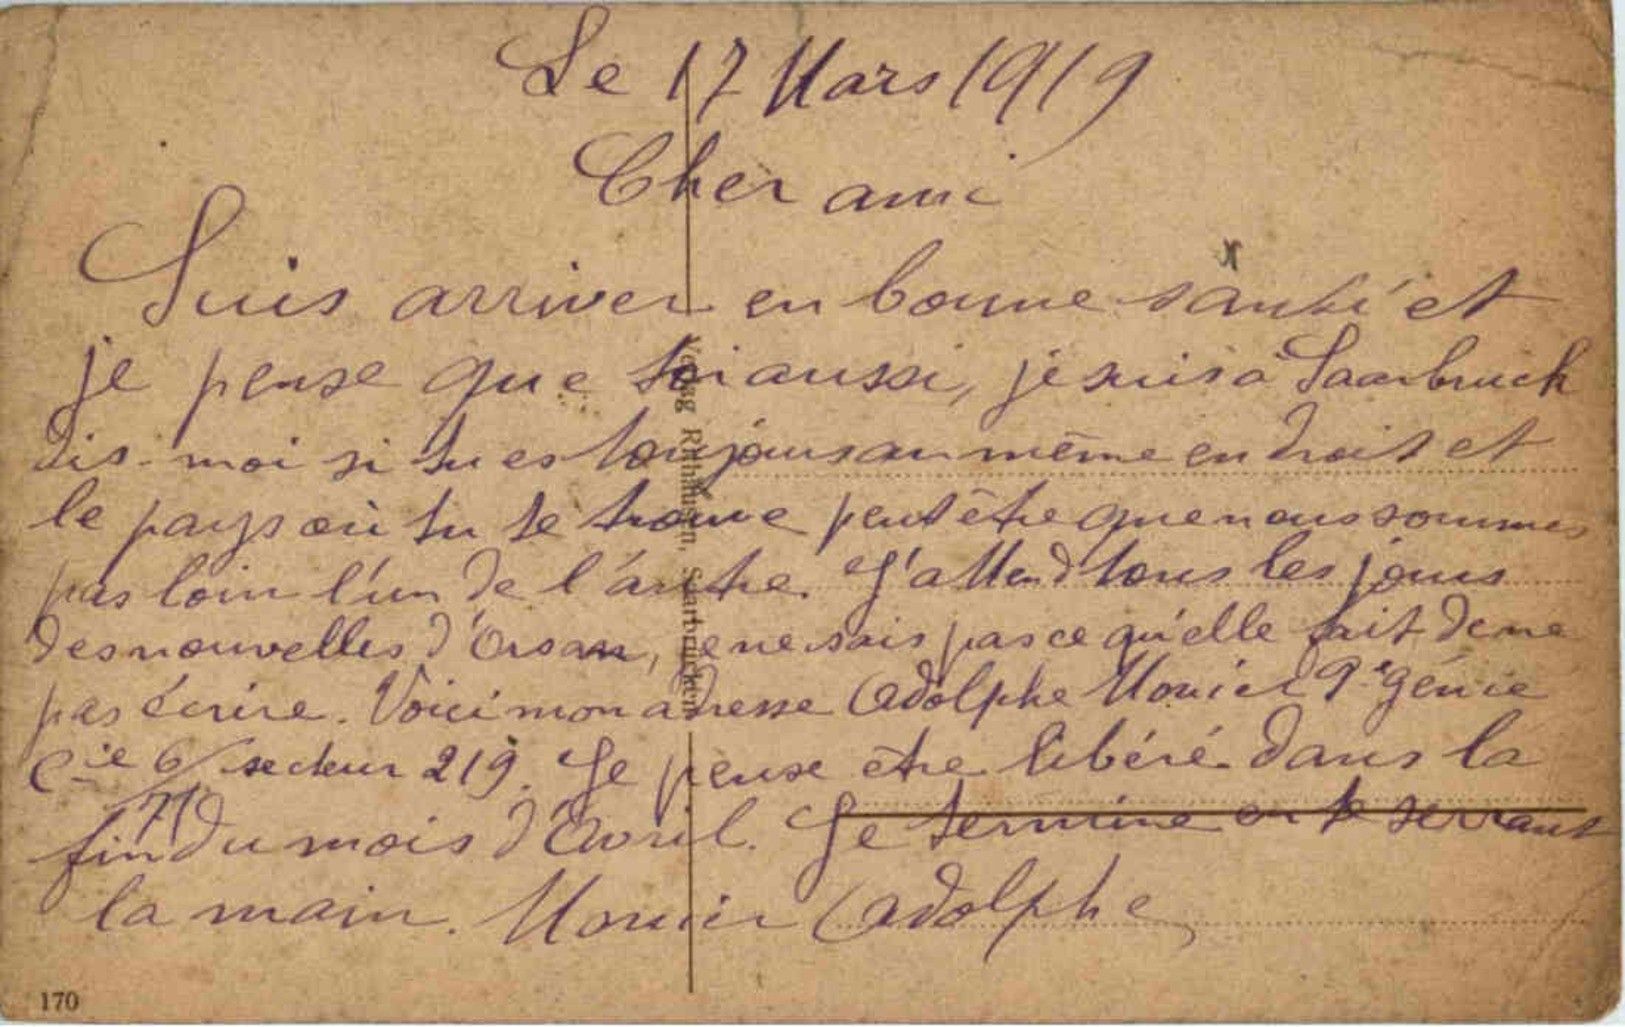 Le 17 Mars 1919
Cher ami
Suis arriver en bonne santé et
je pense que toi aussi, je suis à Saarbruck
dis-moi si tu es toujours au même endroit et
le pays où tu te trouve peut être que nous sommes
pas loin l'un de l'autre. J'attend tous les jours
des nouvelles d'Orsan, je ne sais pas ce qu'elle fait de ne
pas écrire. Voici mon adresse Adolphe Monier 9e génie
Cie 6/71 secteur 219. Je pense être libéré dans la
fin du mois d'Avril. Je termine en te serrant
la main. Monier Adolphe
Verlag Saarbrücken
170